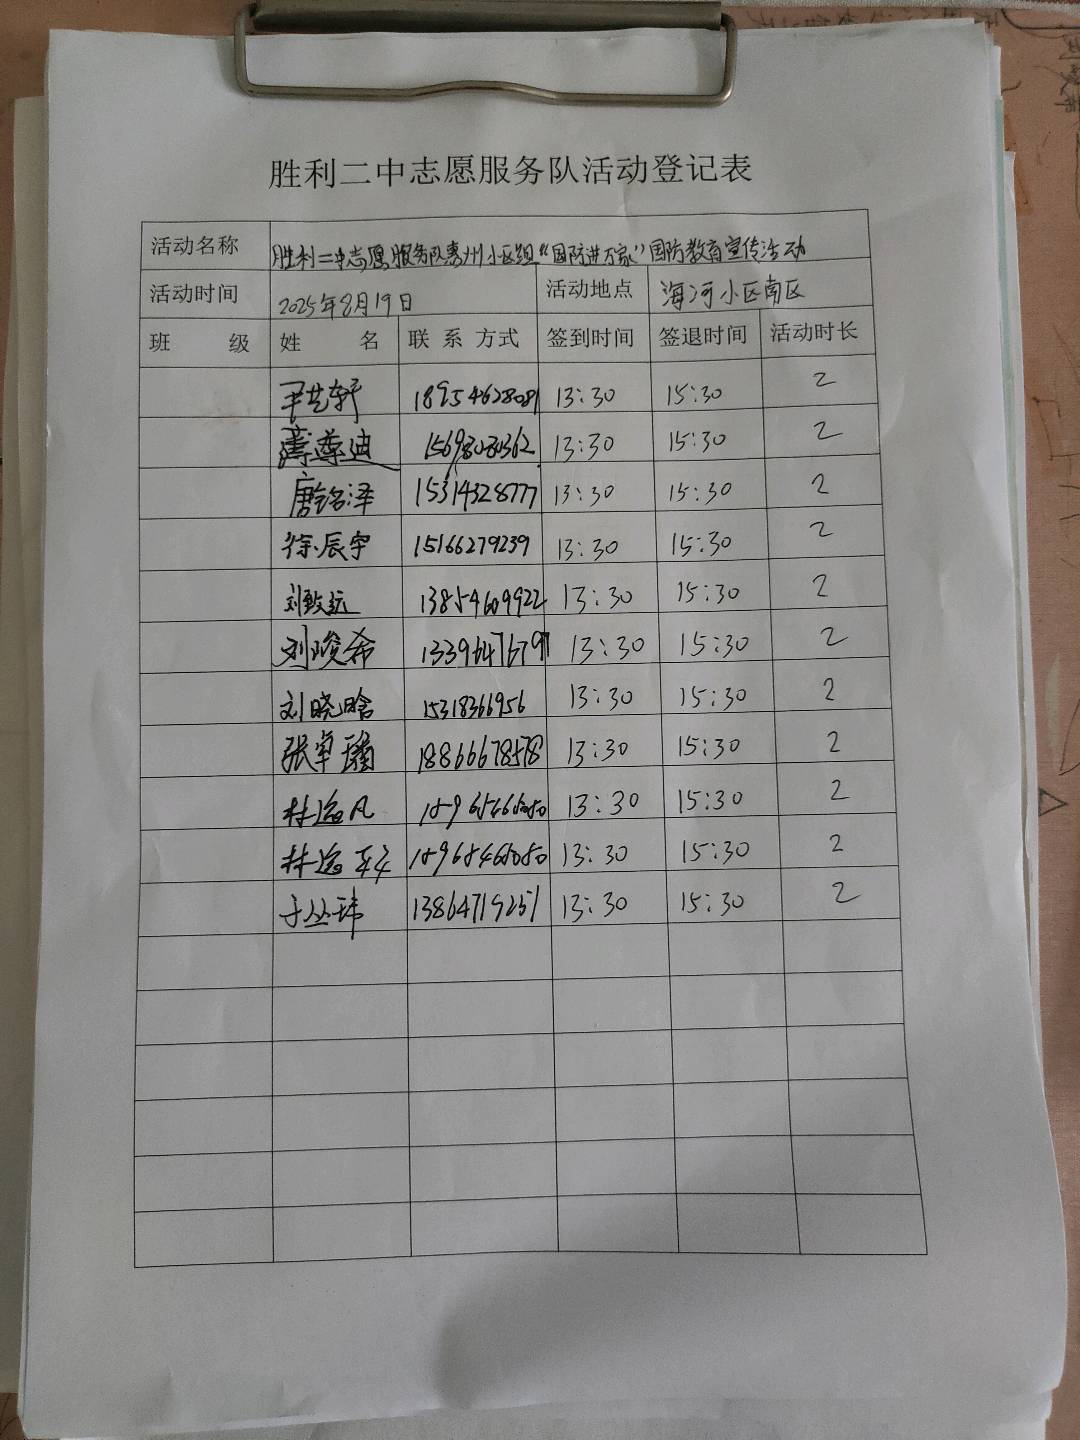 胜利二中志愿服务队活动登记表
活动名称 胜利二中志愿服务队惠州小区组“国防进万家”国防教育宣传活动
活动时间 2025年8月19日 活动地点 海河小区南区
班 级 姓 名 联 系 方式 签到时间 签退时间 活动时长
尹艺轩 18954628081 13:30 15:30 2
15698080362 13:30 15:30 2
唐铭泽 15314328777 13:30 15:30 2
徐辰宇 15166279239 13:30 15:30 2
刘致远 13854609922 13:30 15:30 2
刘峻希 13396476797 13:30 15:30 2
刘晓晗 15318366956 13:30 15:30 2
张卓 18866678578 13:30 15:30 2
林逸凡 13:30 15:30 2
林逸 18968468080 13:30 15:30 2
于丛玮 13864719251 13:30 15:30 2